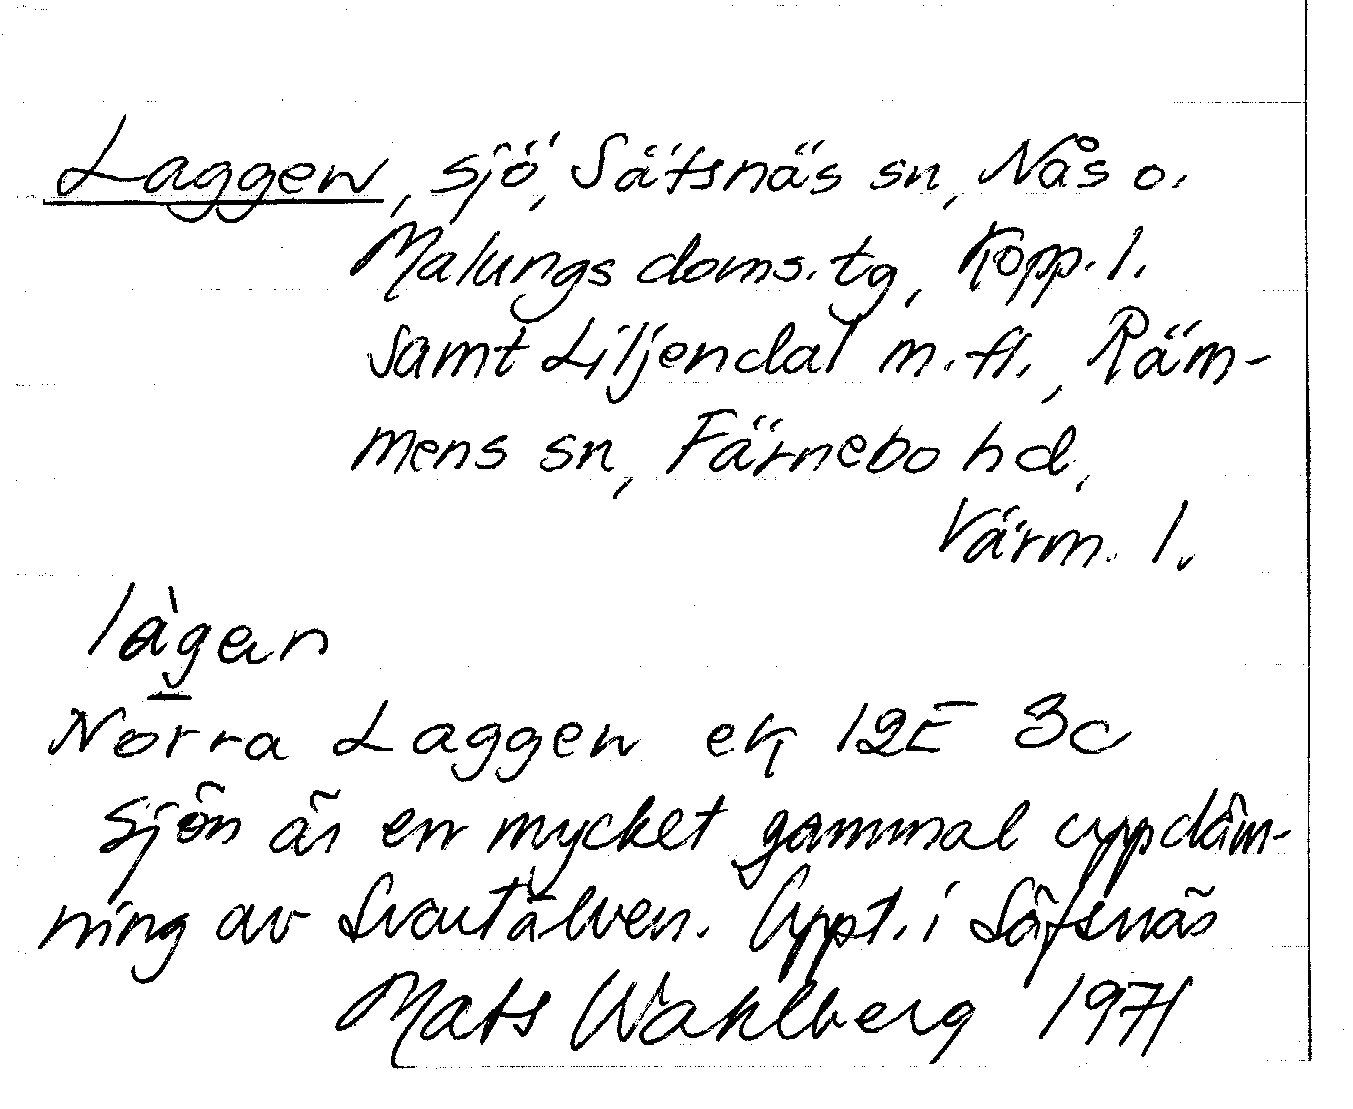 Laggen, sjö, Säfsnäs sn, Nås o.
Malungs doms. tg, Kopp. l.
samt Liljendal m. fl., Räm-
mens sn, Färnebo hd,
Värm. l.
làgan
Norra Laggen ek 12E 3c
Sjön är en mycket gammal uppdäm-
ning av Svartälven. Uppt. i Säfsnäs
Mats Wahlberg 1971